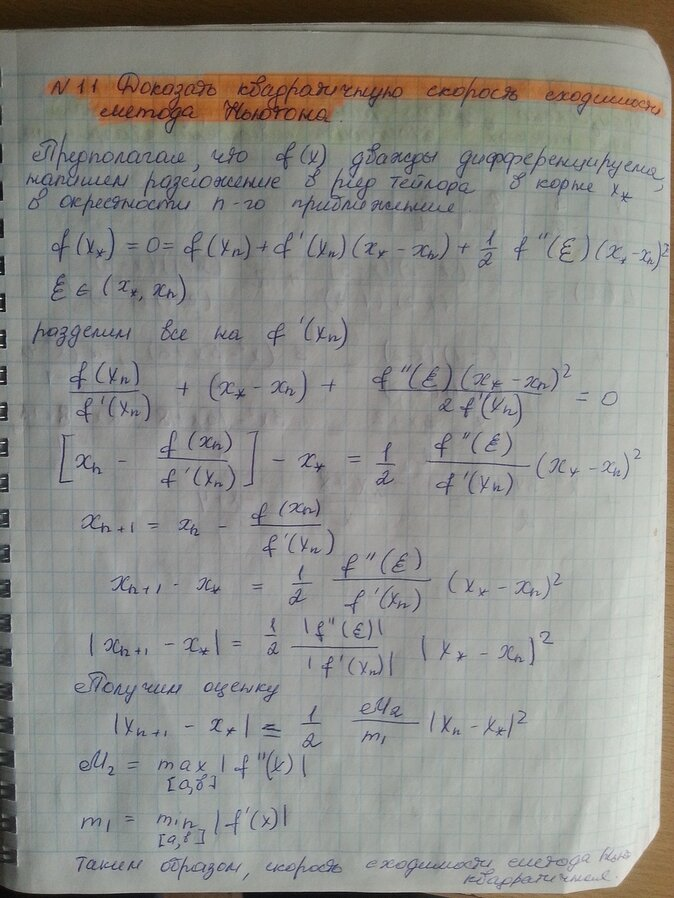 N 11 Доказать квадратичную скорость сходимости
метода Ньютона.
Предполагая, что f(x) дважды дифференцируема,
напишем разложение в ряд Тейлора в корне x_*
в окрестности n-го приближения.
f(x_*) = 0 = f(x_n) + f'(x_n)(x_* - x_n) + 1/2 f''(ξ)(x_* - x_n)^2
ξ ∈ (x_*, x_n)
разделим все на f'(x_n)
f(x_n)/f'(x_n) + (x_* - x_n) + f''(ξ)(x_* - x_n)^2/2f'(x_n) = 0
[x_n - f(x_n)/f'(x_n)] - x_* = 1/2 f''(ξ)/f'(x_n) (x_* - x_n)^2
x_{n+1} = x_n - f(x_n)/f'(x_n)
x_{n+1} - x_* = 1/2 f''(ξ)/f'(x_n) (x_* - x_n)^2
|x_{n+1} - x_*| = 1/2 |f''(ξ)|/|f'(x_n)| |x_* - x_n|^2
Получим оценку
|x_{n+1} - x_*| ≤ 1/2 M_2/m_1 |x_n - x_*|^2
M_2 = max_{[a,b]} |f''(x)|
m_1 = min_{[a,b]} |f'(x)|
таким образом, скорость сходимости метода Нью
квадратичная.